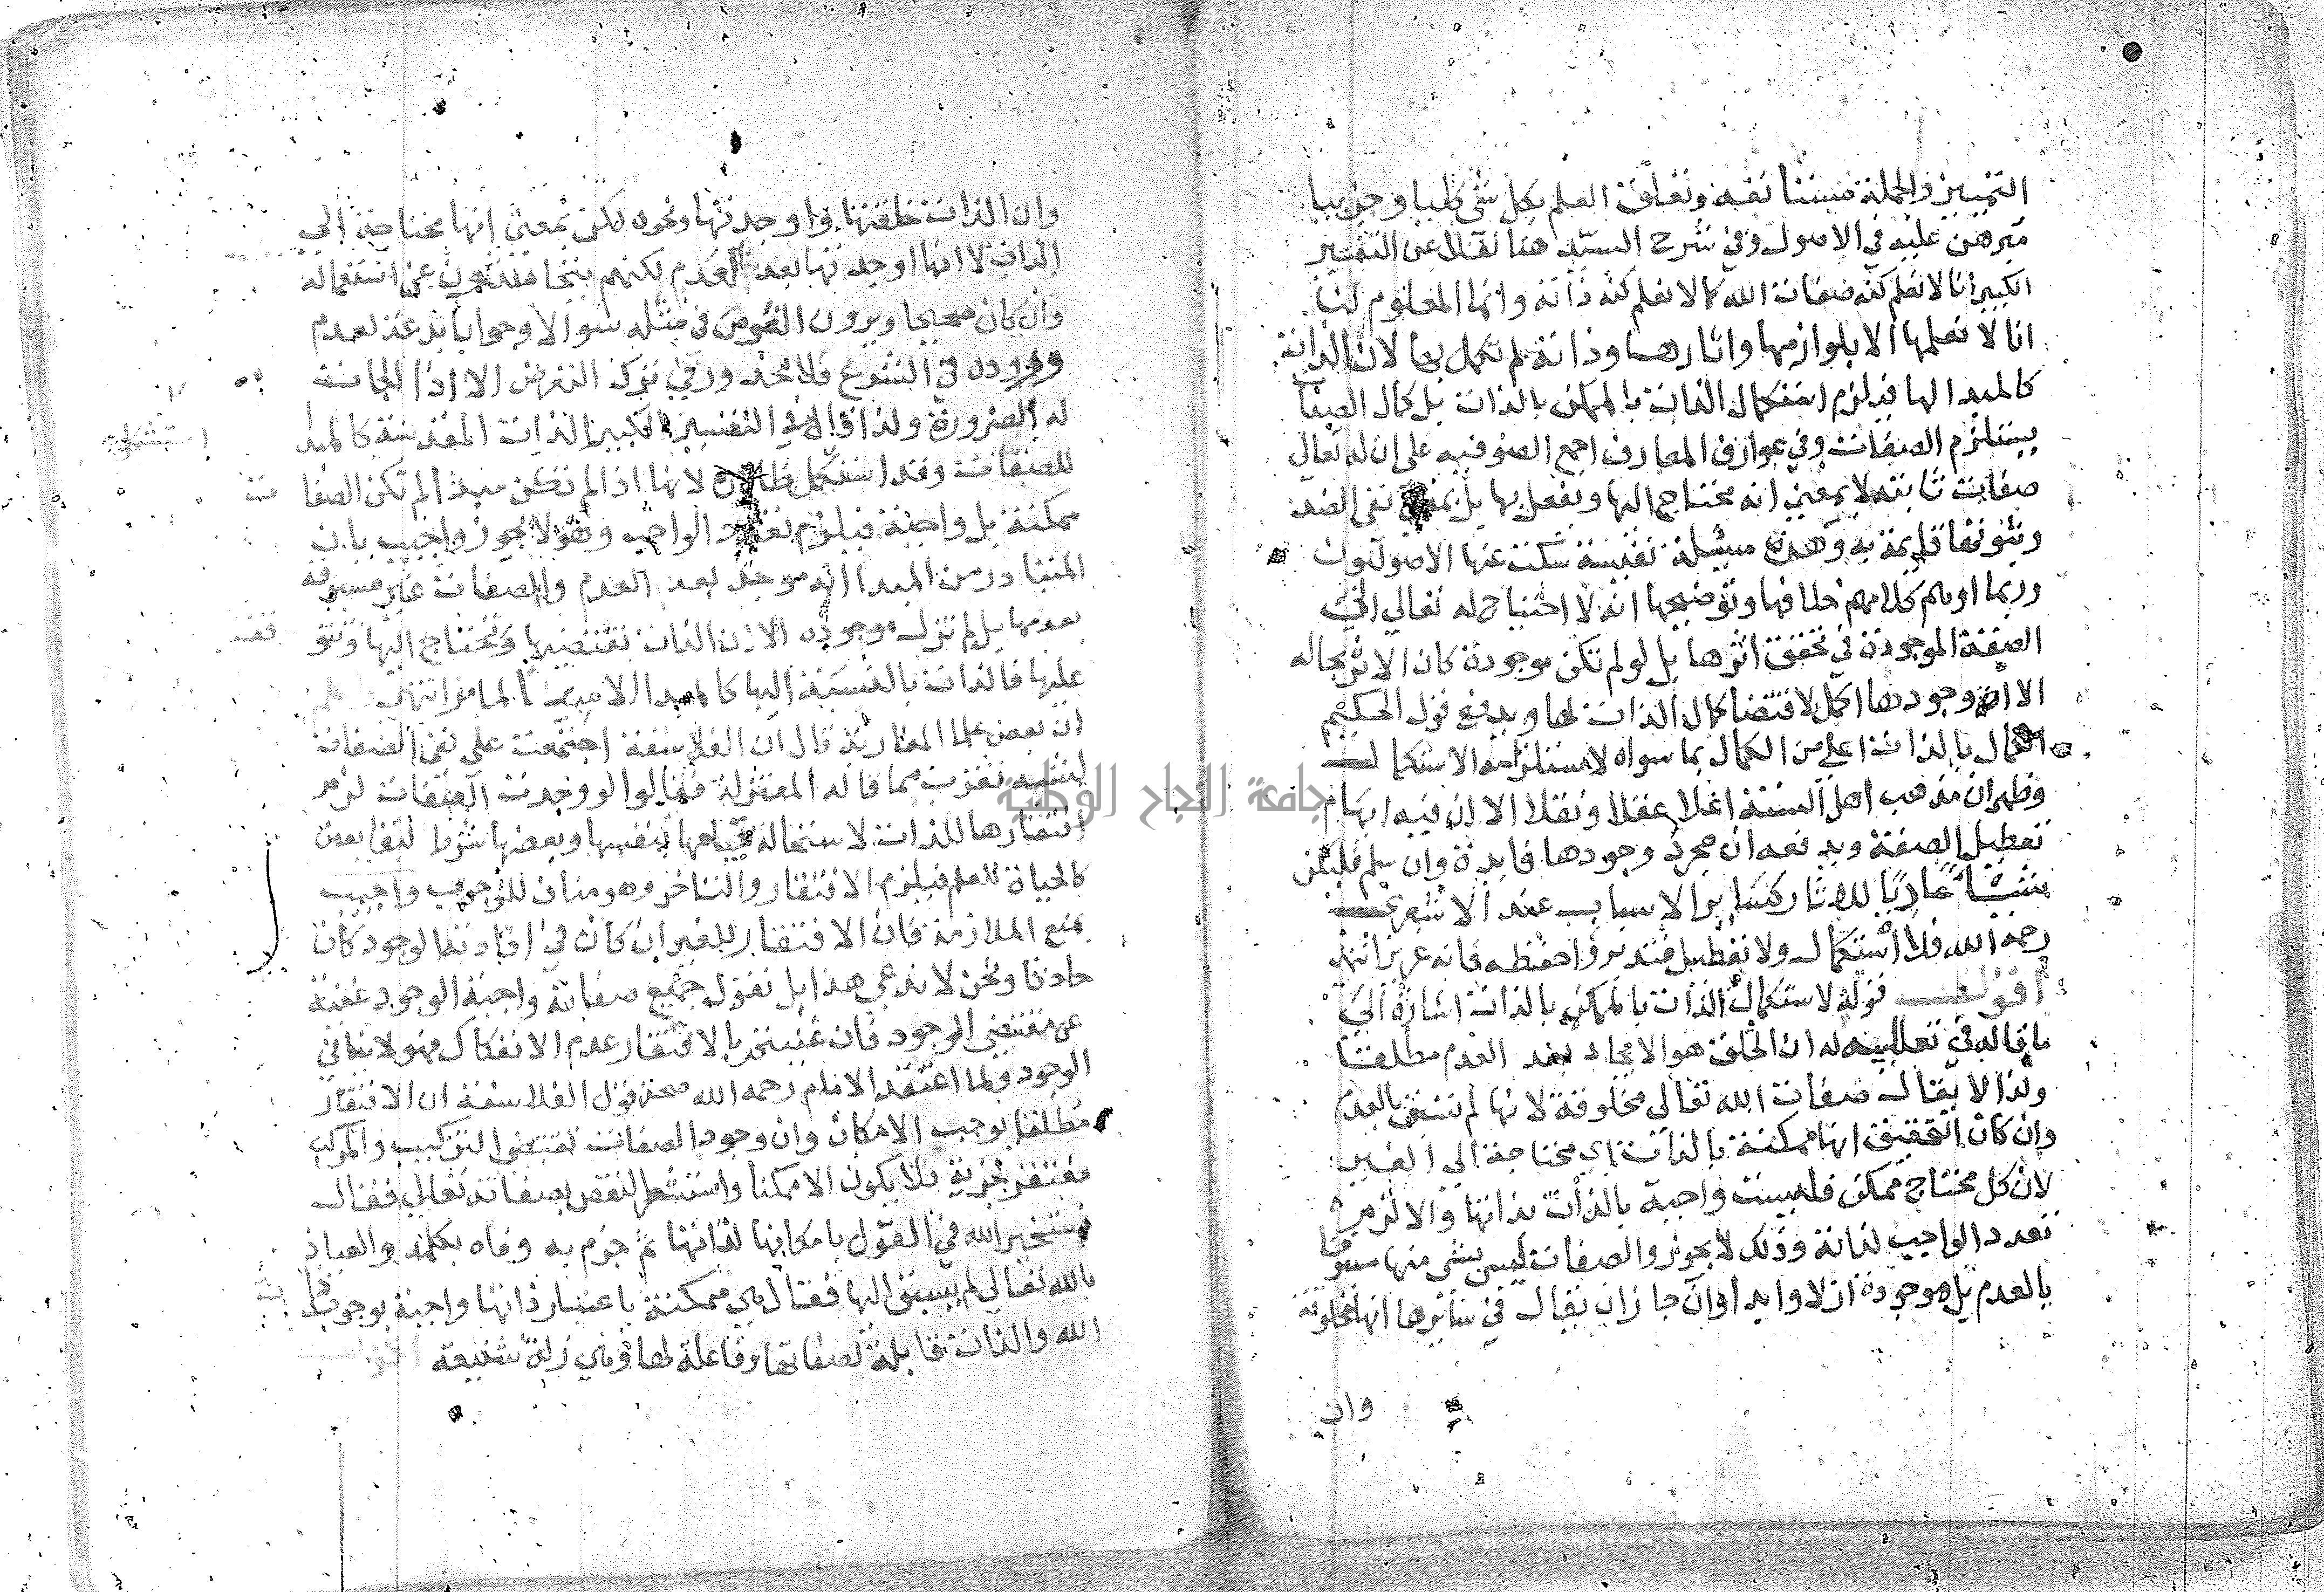 التمييز والجملة مستأنفة وتعلق العلم بكل شي كليا وجزييا
مبرهن عليه في الاصول وفي شرح السيد هنا نقلا عن التفسير
الكبير انا لا نعلم كنه صفات الله كما لا نعلم كنه ذاته وانما المعلوم لنا
انا لا نعلمها الا بلوازمها واثارها وذاته لم تكمل بها لان الذات
كالمبدا لها فيلزم استكمال الذات بالممكن بالذات بل كمال الصفا
يستلزم الصفات وفي عوارف المعارف اجمع الصوفيه على ان له تعالى
صفات ثابته لا بمعنى انه محتاج اليها ويفعل بها بل بمعنى نفي الضد
وثبوتها قايمة به وهذه مسئلة نفيسة سكت عنها الاصوليون
وربما اوهم كلامهم خلافها وتوضيحها انه لا احتياج له تعالى الى
الصفة الموجودة في تحقق اثرها بل لو لم تكن موجودة كان الاثر بحاله
الا ان وجودها اكمل لاقتضا كمال الذات لها ويدفع قول الحكيم
الكمال بالذات اعلى من الكمال بما سواه لاستلزامه الاستكمال
وظهر ان مذهب اهل السنة اعلا عقلا ونقلا الا ان فيه ايهام
تعطيل الصفة ويدفعه ان مجرد وجودها فايدة وان سلم فليكن
سببا عاديا للاثار كساير الاسباب عند الاشعري
رحمه الله فلا استكمال ولا تعطيل فتدبر واحفظه فانه عزيز انتهى
اقول قوله لاستكمال الذات بالممكن بالذات اشارة الى
ما قاله في تعاليقه له ان الخلق هو الايجاد بعد العدم مطلقا
ولذا لا يقال صفات الله تعالى مخلوقة لانها لم تسبق بالعدم
وان كان التحقيق انها ممكنة بالذات اي محتاجة الى الغير
لان كل محتاج ممكن فليست واجبة بالذات بذاتها والا لزم
تعدد الواجب لذاته وذلك لا يجوز والصفات ليس شي منها مسبوقا
بالعدم بل موجودة ازلا وابدا وان جاز ان يقال في تاثرها انها مخلوقة
وان
وان الذات خلقتها واوجدتها ونحوه لكن بمعنى انها محتاجة الى
الذات لا انها اوجدتها بعد العدم لكنهم يتحاشون عن استعماله
وان كان صحيحا ويرون الخوض في مثله سوالا وجوابا بدعة لعدم
وروده في الشرع فلا محذور في ترك التعرض الا اذا الجات
له الضرورة ولذا قال في التفسير الكبير الذات المقدسة كالمبدا
للصفات وقد استشكل لانها اذا لم تكن مبدا لم تكن الصفا
ممكنة بل واجبة فيلزم تعدد الواجب وهو لا يجوز واجيب بان
المتبادر من المبدا انه موجد بعد العدم والصفات غير مسبوقة
بعدمها بل لم تزل موجودة الا ان الذات تقتضيها وتحتاج اليها وتتو
عليها فالذات بالنسبة اليها كالمبدا لا مبدا لما مر انتهى واعلم
ان بعض علما المغاربة قال ان الفلاسفة اجتمعت على نفي الصفات
لشبه تقرب مما قاله المعتزلة فقالوا لو وجدت الصفات لزم
افتقارها للذات لاستحالة قيامها بنفسها وبعضها شرط لبقا بعض
كالحياة للعلم فيلزم الافتقار والتاخر وهو مناف للوجوب واجيب
بمنع الملازمة فان الافتقار للغير ان كان في افادته الوجود كان
حادثا ونحن لا ندعي هذا بل نقول جميع صفاته واجبة الوجود غنية
عن مقتضى الوجود فان عنيتم بالافتقار عدم الانفكاك فهو لا ينافي
الوجود ولما اعتقد الامام رحمه الله صحة قول الفلاسفة ان الافتقار
مطلقا يوجب الامكان وان وجود الصفات تقتضي التركيب والمركب
مفتقر لجزيه فلا يكون الا ممكنا واستشعر النقض بصفاته تعالى فقال
نستخير الله في القول بامكانها لذاتها ثم جزم به وفاه بكلمة والعياذ
بالله تعالى لم يسبق اليها فقال هي ممكنة باعتبار ذاتها واجبة بوجوب
الله والذات قابلة لصفاتها وفاعلة لها وهي زلة شنيعة
استشكل
جامعة النجاح الوطنية